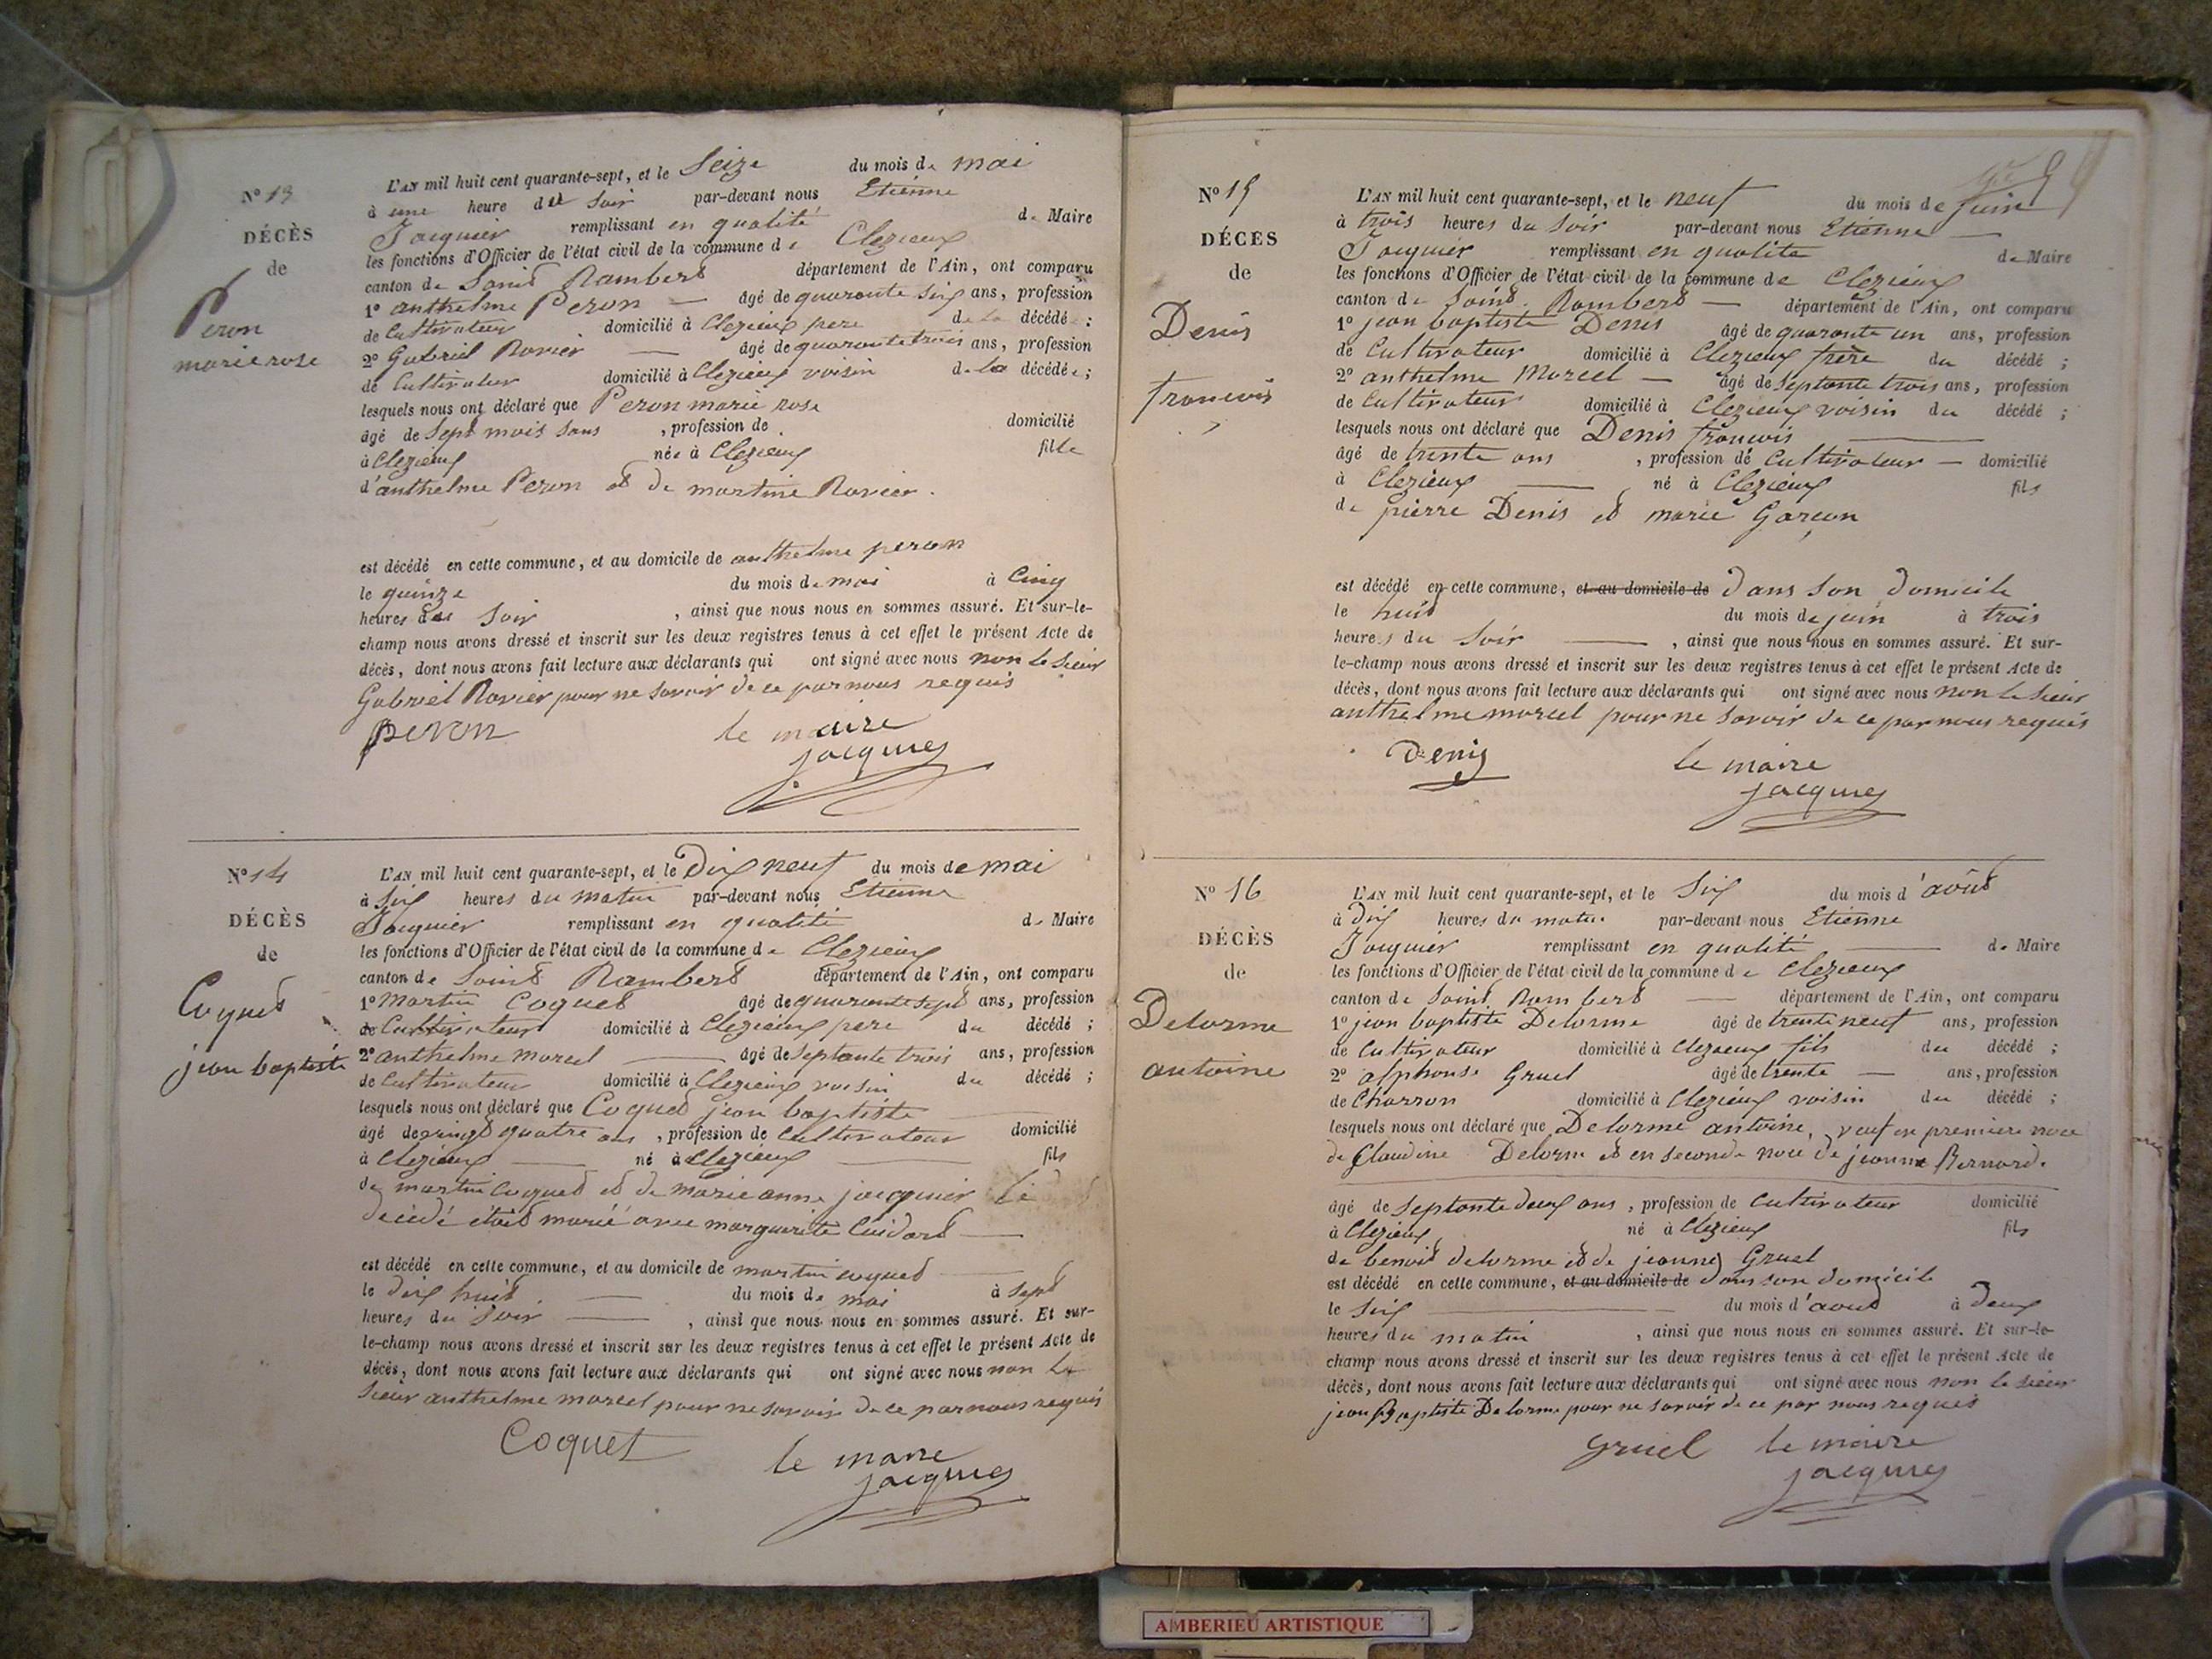 N° 13
DÉCÈS
de
Peron
marie rose
L'AN mil huit cent quarante-sept, et le Seize du mois de mai
à une heure du Soir par-devant nous Etienne
Jacquier remplissant en qualité de Maire
les fonctions d'Officier de l'état civil de la commune de Clezieux
canton de Saint Rambert département de l'Ain, ont comparu
1° anthelme Peron — âgé de quarante six ans, profession
de Cultivateur domicilié à Clezieux pere de la décédée ;
2° Gabriel Ravier — âgé de quarante trois ans, profession
de Cultivateur domicilié à Clezieux voisin de la décédée ;
lesquels nous ont déclaré que Peron marie rose
âgé de Sept mois Sans , profession de domicilié
à Clezieux née à Clezieux fille
d'anthelme Peron et de martine Ravier.
est décédé en cette commune, et au domicile de anthelme peron
le quinze du mois de mai à Cinq
heures du Soir , ainsi que nous nous en sommes assuré. Et sur-le-
champ nous avons dressé et inscrit sur les deux registres tenus à cet effet le présent Acte de
décès, dont nous avons fait lecture aux déclarants qui ont signé avec nous non le Sieur
Gabriel Ravier pour ne Savoir de ce par nous requis
peron le maire
jacquier
N° 14
DÉCÈS
de
Coquet
jean baptiste
L'AN mil huit cent quarante-sept, et le Dix neuf du mois de mai
à Six heures du matin par-devant nous Etienne
Jacquier remplissant en qualité de Maire
les fonctions d'Officier de l'état civil de la commune de Clezieux
canton de Saint Rambert département de l'Ain, ont comparu
1° Martin Coquet âgé de quarante sept ans, profession
de Cultivateur domicilié à Clezieux pere du décédé ;
2° anthelme marcel — âgé de Septante trois ans, profession
de Cultivateur domicilié à Clezieux voisin du décédé ;
lesquels nous ont déclaré que Coquet jean baptiste
âgé de vingt quatre ans , profession de Cultivateur domicilié
à Clezieux — né à Clezieux — fils
de martin Coquet et de marie anne jacquier le
décédé étoit marié avec marguerite Cuidard —
est décédé en cette commune, et au domicile de martin coquet
le dix huit — du mois de mai à Sept
heures du Soir — , ainsi que nous nous en sommes assuré. Et sur-
le-champ nous avons dressé et inscrit sur les deux registres tenus à cet effet le présent Acte de
décès, dont nous avons fait lecture aux déclarants qui ont signé avec nous non le
Sieur anthelme marcel pour ne savoir de ce par nous requis
Coquet le maire
jacquier
N° 15
DÉCÈS
de
Denis
francois
L'AN mil huit cent quarante-sept, et le neuf du mois de juin
à trois heures du Soir par-devant nous Etienne —
Jacquier remplissant en qualité de Maire
les fonctions d'Officier de l'état civil de la commune de Clezieux
canton de Saint Rambert — département de l'Ain, ont comparu
1° jean baptiste Denis âgé de quarante un ans, profession
de Cultivateur domicilié à Clezieux frère du décédé ;
2° anthelme Marcel — âgé de Septante trois ans, profession
de Cultivateur domicilié à Clezieux voisin du décédé ;
lesquels nous ont déclaré que Denis francois —
âgé de trente ans , profession de Cultivateur — domicilié
à Clezieux — né à Clezieux fils
de pierre Denis et marie Garcon
est décédé en cette commune, et au domicile de dans Son domicile
le huit du mois de juin à trois
heures du Soir — , ainsi que nous nous en sommes assuré. Et sur-
le-champ nous avons dressé et inscrit sur les deux registres tenus à cet effet le présent Acte de
décès, dont nous avons fait lecture aux déclarants qui ont signé avec nous non le Sieur
anthelme marcel pour ne Savoir de ce par nous requis
Denis le maire
jacquier
N° 16
DÉCÈS
de
Delorme
antoine
L'AN mil huit cent quarante-sept, et le Six du mois d'août
à dix heures du matin par-devant nous Etienne
Jacquier remplissant en qualité — de Maire
les fonctions d'Officier de l'état civil de la commune de Clezieux
canton de Saint Rambert — département de l'Ain, ont comparu
1° jean baptiste Delorme âgé de trente neuf ans, profession
de Cultivateur domicilié à Clezieux fils du décédé ;
2° alphonse Gruel âgé de trente — ans, profession
de Charron domicilié à Clezieux voisin du décédé ;
lesquels nous ont déclaré que Delorme antoine, veuf en premiere noce
de Claudine Delorme et en seconde noce de jeanne Bernard.
âgé de Septante deux ans , profession de Cultivateur domicilié
à Clezieux né à Clezieux fils
de benoit delorme et de jeanne Gruel
est décédé en cette commune, et au domicile de dans son domicile
le Six — du mois d'aout à deux
heures du matin , ainsi que nous nous en sommes assuré. Et sur-le-
champ nous avons dressé et inscrit sur les deux registres tenus à cet effet le présent Acte de
décès, dont nous avons fait lecture aux déclarants qui ont signé avec nous non le Sieur
jean Baptiste Delorme pour ne savoir de ce par nous requis
gruel le maire
jacquier
AMBERIEU ARTISTIQUE